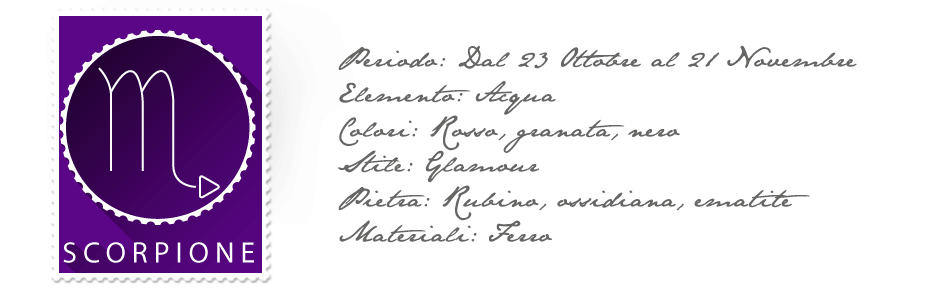 SCORPIONE
Periodo: Dal 23 Ottobre al 21 Novembre
Elemento: Acqua
Colori: Rosso, granata, nero
Stile: Glamour
Pietra: Rubino, ossidiana, ematite
Materiali: Ferro